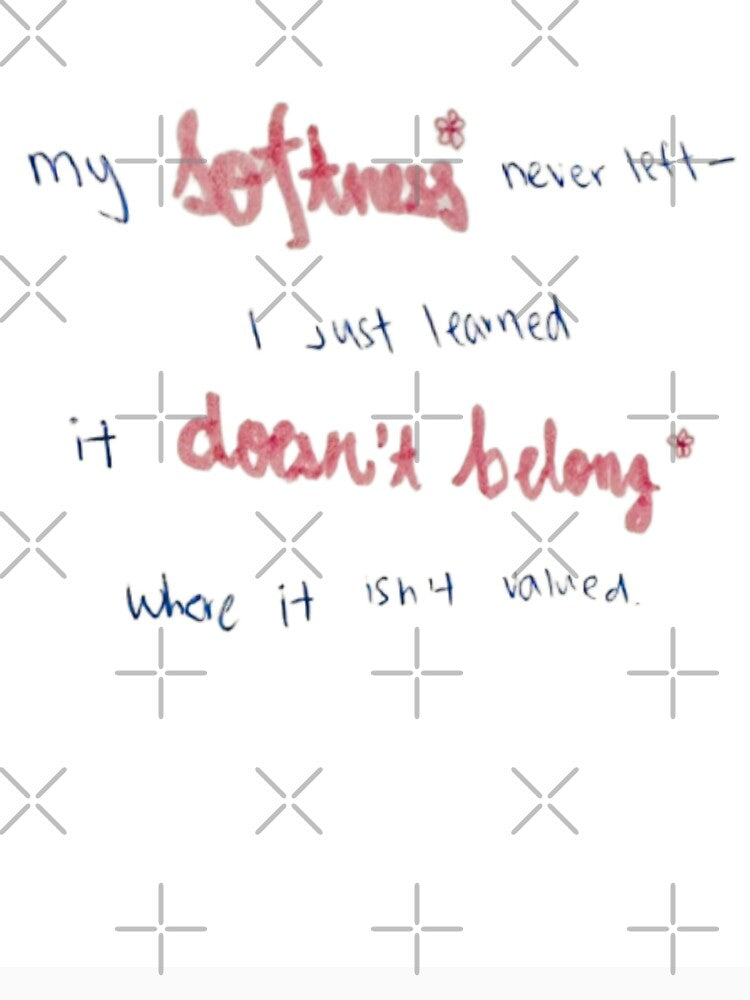 my softness* never left—
I just learned
it doesn't belong*
where it isn't valued.